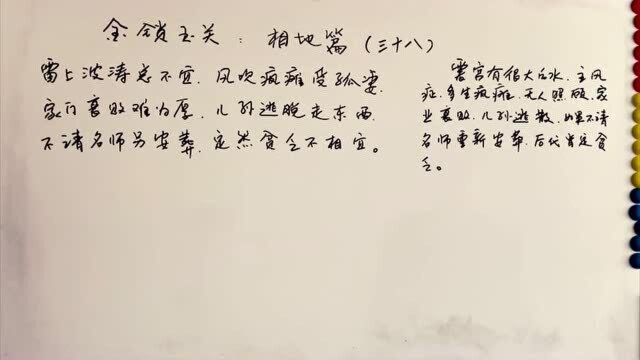 金锁玉关：相地篇（三十八）
雷上波涛总不宜，风吹疯瘫受孤凄，
家门衰败难为厚，儿孙逃脱走东西，
不请名师另安葬，定然贫乏不相宜。
震宫有很大的水，主风
症，多生疯瘫，无人照顾，家
业衰败，儿孙逃散，如果不请
名师重新安葬，后代肯定贫
乏。